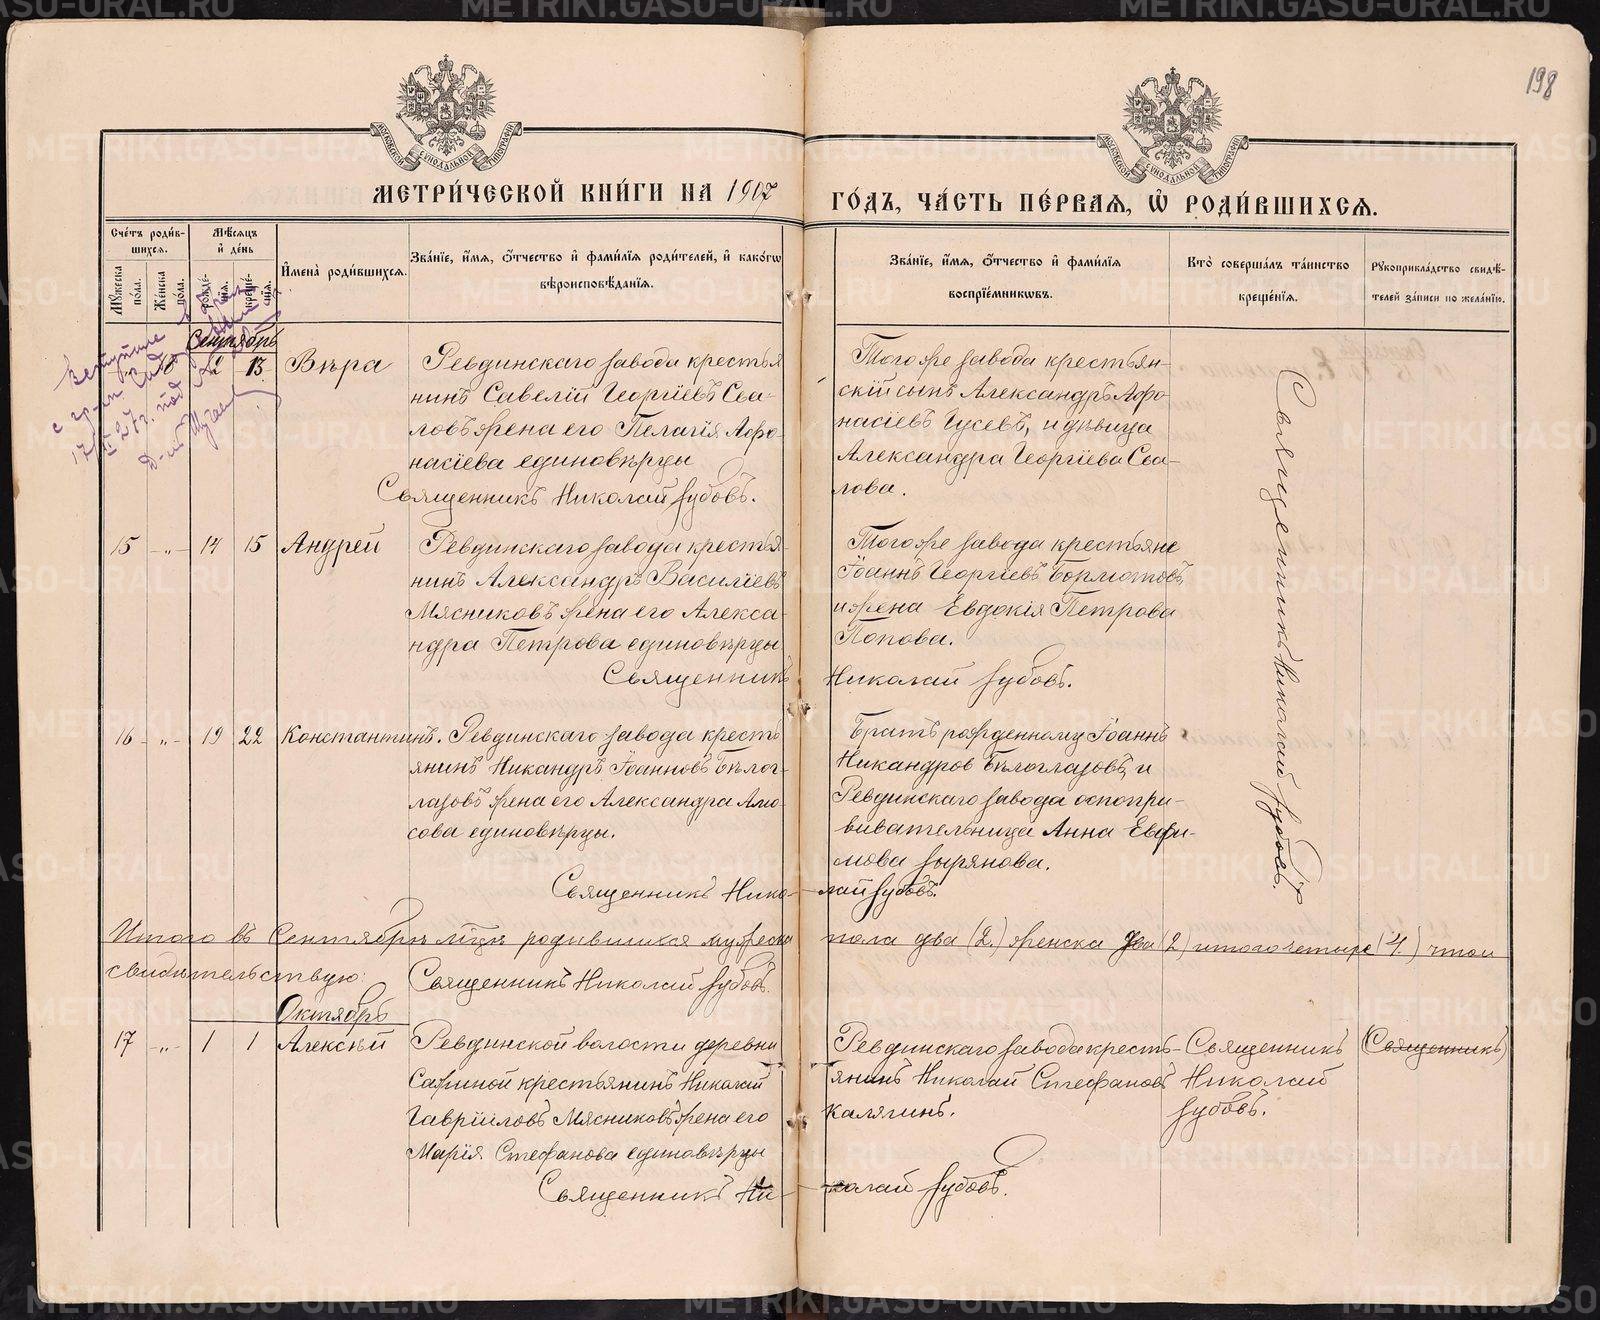 198
МОСКОВСКОЙ СѴНОДАЛЬНОЙ ТИПОГРАФІИ
МОСКОВСКОЙ СѴНОДАЛЬНОЙ ТИПОГРАФІИ
МЕТРИ́ЧЕСКОЙ КНИ́ГИ НА 1907 ГО́ДЪ, ЧА́СТЬ ПЕ́РВАѦ, Ѡ҆ РОДИ́ВШИХСѦ.
Сче́тъ роди́в-
шихсѧ.
Мꙋ́жеска
пола.
Же́нска
пола.
Мѣ́сѧцъ
и҆ де́нь
рожде́-
нїѧ.
креще́-
нїѧ.
И҆мена̀ роди́вшихсѧ.
Зва́нїе, и҆́мѧ, ѻ҆́тчество и҆ фами́лїѧ роди́телей, и҆ како́гѡ
вѣроисповѣ́данїѧ.
Зва́нїе, и҆́мѧ, ѻ҆́тчество и҆ фами́лїѧ
воспрїе́мникѡвъ.
Кто̀ соверша́лъ та́инство
креще́нїѧ.
Рꙋкоприкла́дство свидѣ́-
телей за́писи по жела́нїю.
Сентябрь
13
Вѣра
Ревдинскаго завода крестья
нинъ Савелій Георгіевъ Сва-
ловъ жена его Пелагія Афо-
насіева единовѣрцы
Священникъ Николай Зубовъ.
Тогоже завода крестьян-
скій сынъ Александръ Афо
насіевъ Гусевъ, и дѣвица
Александра Георгіева Сва-
лова.
Священникъ Николай Зубовъ.
15 -„- 14 15 Андрей
Ревдинскаго завода крестья-
нинъ Александръ Василіевъ
Мясниковъ жена его Алекса-
ндра Петрова единовѣрцы
Тогоже завода крестьяне
Іоаннъ Георгіевъ Бормотовъ,
и жена Евдокія Петрова
Попова.
Священникъ Николай Зубовъ.
16 -„- 19 22 Константинъ.
Ревдинскаго завода кресть
янинъ Никандръ Іоанновъ Бѣлог-
лазовъ жена его Александра Амо-
сова единовѣрцы.
Братъ рожденному Іоаннъ
Никандров Бѣлоглазовъ, и
Ревдинскаго завода оспопри-
вивательница Анна Евфи-
мова Зырянова.
Священникъ Нико- лай Зубовъ.
Итого въ Сентябрѣ мѣцѣ родившихся мужеска пола два (2) женска два (2) итого четыре (4) что и
свидѣтельствую: Священникъ Николай Зубовъ.
Октябрь
17 -„- 1 1 Алексѣй
Ревдинской волости деревни
Сажиной крестьянинъ Николай
Гавріиловъ Мясниковъ жена его
Марія Стефанова единовѣрцы
Ревдинскаго завода кресть-
янинъ Николай Стефановъ
Калягинъ.
Священникъ
Николай
Зубовъ.
(Священникъ)
Священникъ Ни- колай Зубовъ.